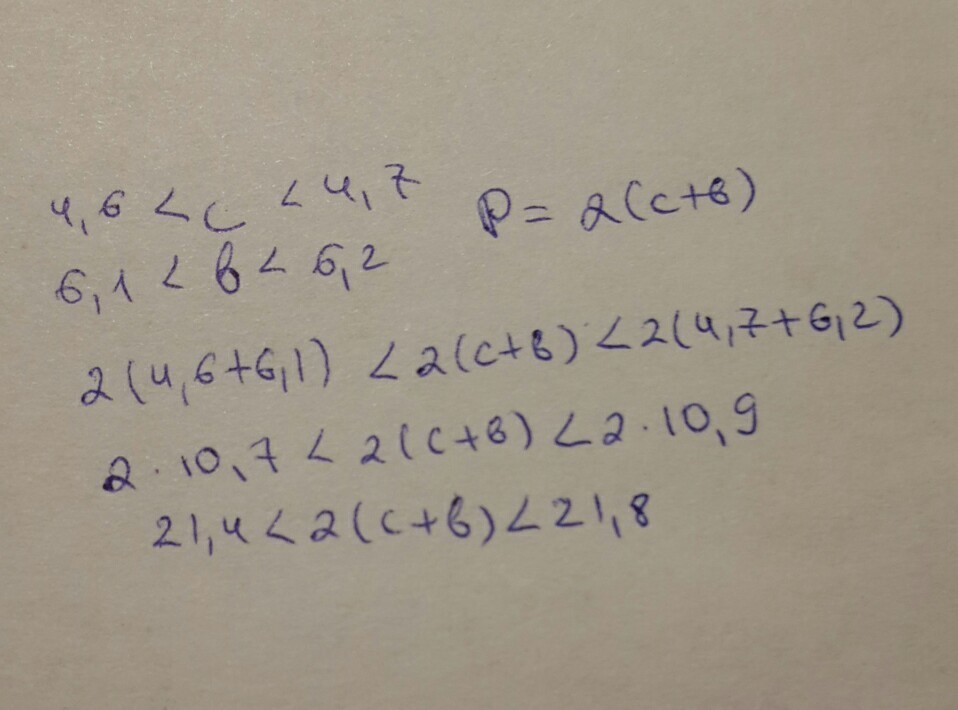 4,6 < c < 4,7 P = 2(c+в)
6,1 < в < 6,2
2(4,6+6,1) < 2(c+в) < 2(4,7+6,2)
2·10,7 < 2(c+в) < 2·10,9
21,4 < 2(c+в) < 21,8